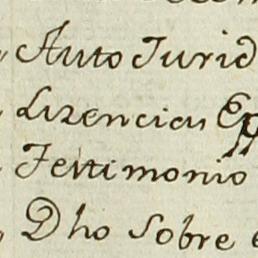 Auto Jurid
Lizencia Ep
Testimonio
Dho sobre